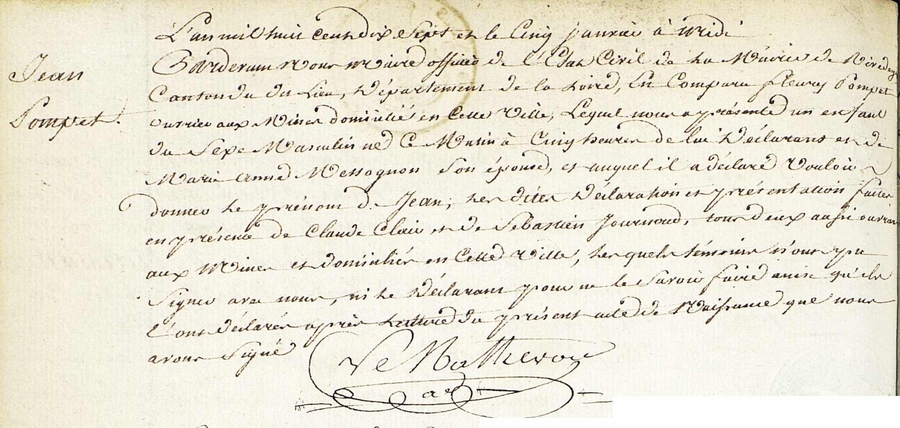 Jean
Pompet.
L'an mil huit cent dix Sept et le Cinq janvier à Midi
Pardevant Nous Maire officier de l'Etat Civil de la Mairie de
Canton du dit Lieu, Département de la Loire, En Comparu Fleury Pompet
ouvrier aux Mines domicilié en Cette Ville, Lequel nous a présenté un enfant
du Sexe Masculin né Ce Matin à Cinq heures de lui Déclarant et de
Marie Anne Messagnon Son épouse, et auquel il a déclaré Vouloir
donner le prénom de Jean; Les dites Déclaration et présentation faites
en présence de Claude Clair et de Sébastien Journoud, tous deux aussi ouvriers
aux Mines et domiciliés en Cette Ville, Lesquels témoins n'ont pu
Signer avec nous, ni le Déclarant pour ne le Savoir faire ainsi qu'ils
l'ont déclarés après Lecture du présent acte de Naissance que nous
avons Signé